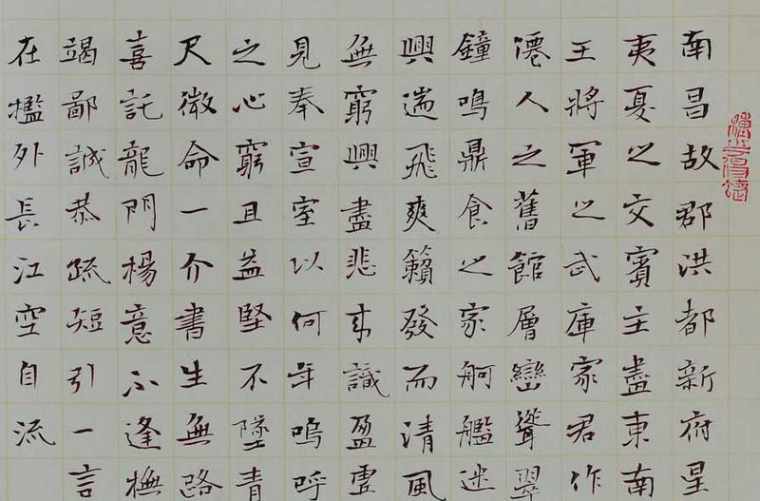 南昌故郡洪都新府星
夷夏之交賓主盡東南
王將軍之武庫家君作
僊人之舊館層巒聳翠
鐘鳴鼎食之家舸艦迷
興遄飛爽籟發而清風
無窮興盡悲来識盈虛
見奉宣室以何年嗚呼
之心窮且益堅不墜青
尺微命一介書生無路
喜託龍門楊意不逢撫
竭鄙誠恭疏短引一言
在檻外長江空自流